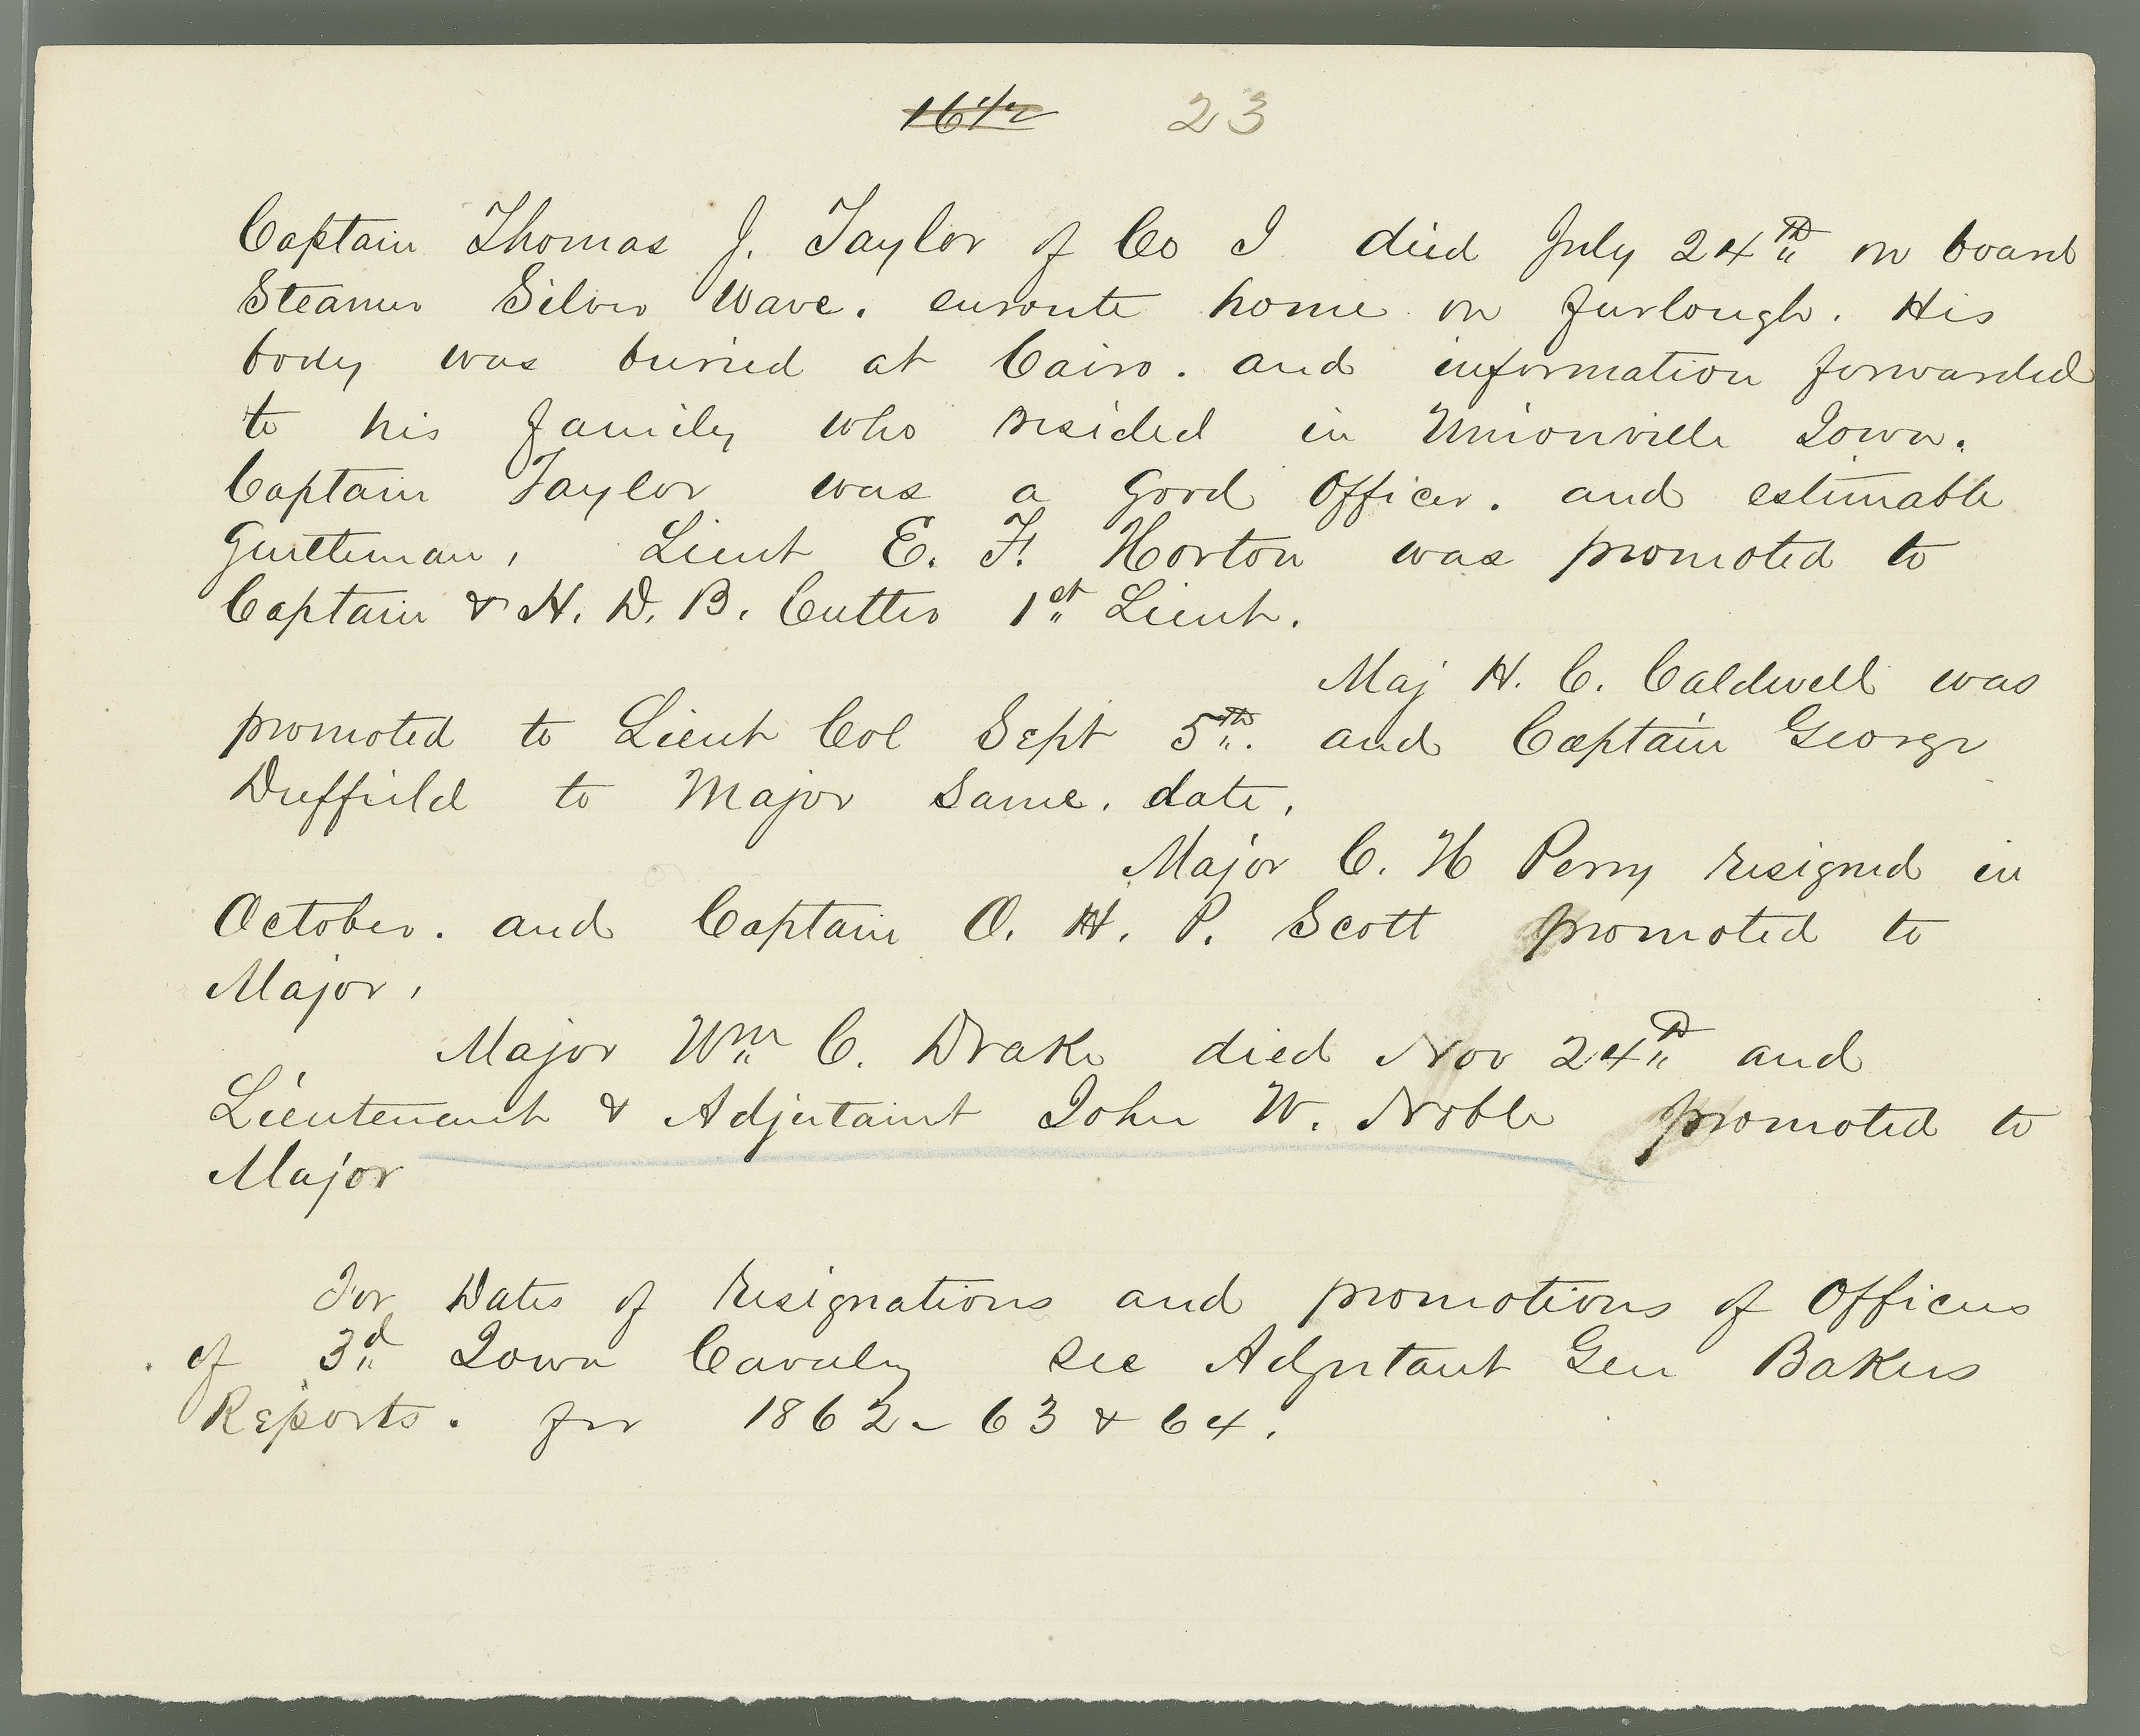 16 1/2 23
Captain Thomas J. Taylor of Co I died July 24th on board
Steamer Silver Wave. enroute home on furlough. His
body was buried at Cairo. and information forwarded
to his family who resided in Unionville Iowa.
Captain Taylor was a good Officer. and estimable
Gentleman, Lieut E. F. Horton was promoted to
Captain & H. D. B. Cutler 1st Lieut.
Maj H. C. Caldwell was
promoted to Lieut Col Sept 5th. and Captain George
Duffield to Major same. date,
Major C. H Perry resigned in
October. and Captain O. H. P. Scott promoted to
Major,
Major Wm C. Drake died Nov 24th and
Lieutenant & Adjutaint John W. Noble promoted to
Major
For Dates of resignations and promotions of Officers
of 3d Iowa Cavalry see Adjutant Gen Bakers
Reports. for 1862-63 & 64.